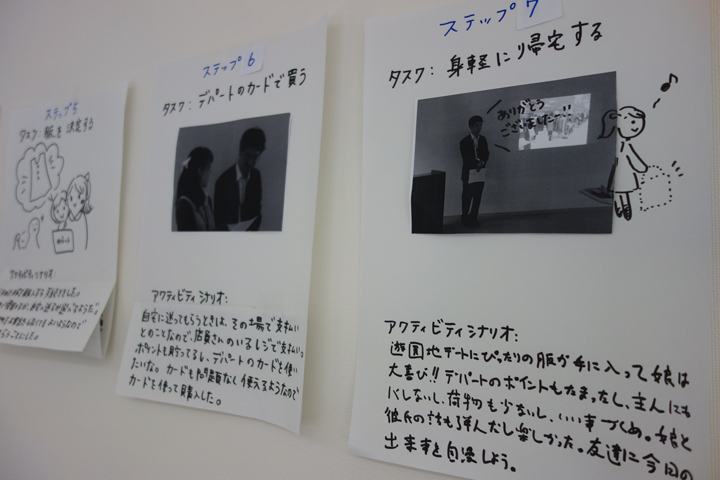 ステップ5
タスク: 服を決定する
アクティビティシナリオ:
ステップ6
タスク: デパートのカードで買う
アクティビティシナリオ:
自宅に送ってもらうときは、その場で支払い
とのことなので、店員さんのいるレジで支払い。
ポイントも貯ってるし、デパートのカードを使い
たいな。カードも問題なく使えるようなので
カードを使って購入した。
ステップ7
タスク: 身軽に帰宅する
ありがとう
ございましたー!!
アクティビティシナリオ:
遊園地デートにぴったりの服が手に入って娘は
大喜び!! デパートのポイントもたまったし、主人にも
バレないし、荷物も少ないし、いい事づくめ。娘と
彼氏の話も弾んだし楽しかった。友達に今日の
出来事を自慢しよう。